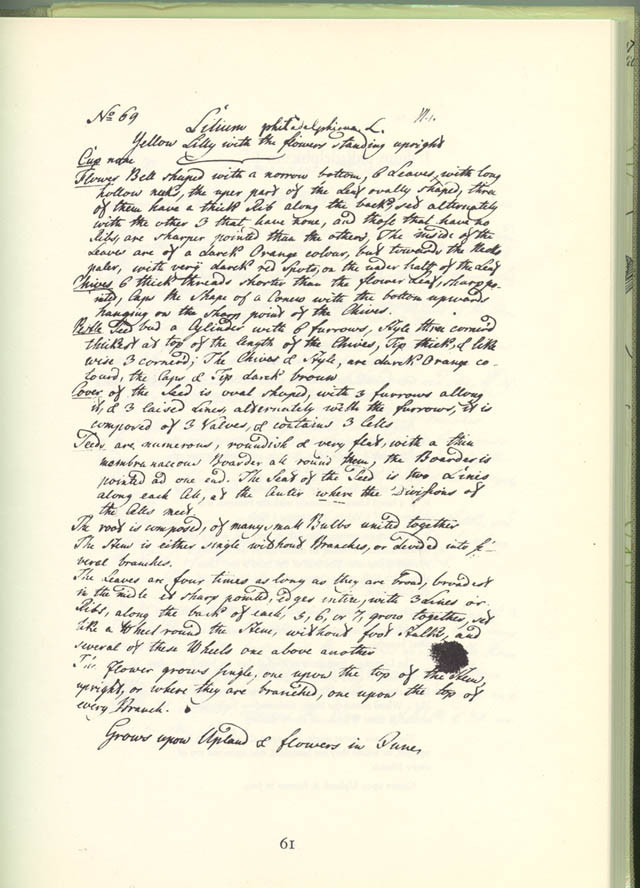 No 69 Lilium philadelphicum L.
Yellow Lilly with the flowers standing upright
Cup none
Flower Bell shaped with a norrow bottom, 6 Leaves, with long
hollow necks, the uper part of the Leaf ovally shaped, three
of them have a thick Rib along the back, set alternately
with the other 3 that have none, and those that have no
Ribs, are sharper pointed than the others, The inside of the
Leaves are of a dark Orange colour, but towards the Necks
paler, with very darck red Spots, on the under half of the Leaf
Chives 6 thick threads shorter than the flower Leaf, sharp po=
inted, Caps the Shape of a Conew with the bottom upwards
hanging on the sharp point of the Chives.
Pestle Seed bud a Cylinder with 6 furrows, Style three cornerd
thickest at top of the length of the Chives, Tip thick & like
wise 3 cornerd; The Chives & Style, are darck Orange co=
lourd, the Caps & Tip darck broun
Cover of the Seed is oval shaped, with 3 furrows allong
it, & 3 raised Lines, alternately with the furrows, it is
composed of 3 Valves, & contains 3 Cells
Seeds are numerous, roundish & very flat, with a thin
membranaceous Boarder all round them, the Boarder is
pointed at one end. The Seat of the Seed is two Lines
along each Cell, at the Center where the Divisions of
the Cells meet.
The root is composed, of many small Bulbs united together
The Stem is either single without Branches, or divided into se=
veral branches.
The Leaves are four times as long as they are broad, broadest
in the midle & sharp pointed, edges intire, with 3 Lines or
Ribs, along the back of each, 5, 6, or 7, grow together, set
like a Wheel round the Stem, without foot Stalks, and
several of these Wheels one above another
The flower grows single, one upon the top of the Stem,
upright, or where they are branched, one upon the top of
every Branch.
Grows upon Upland & flowers in June,
61